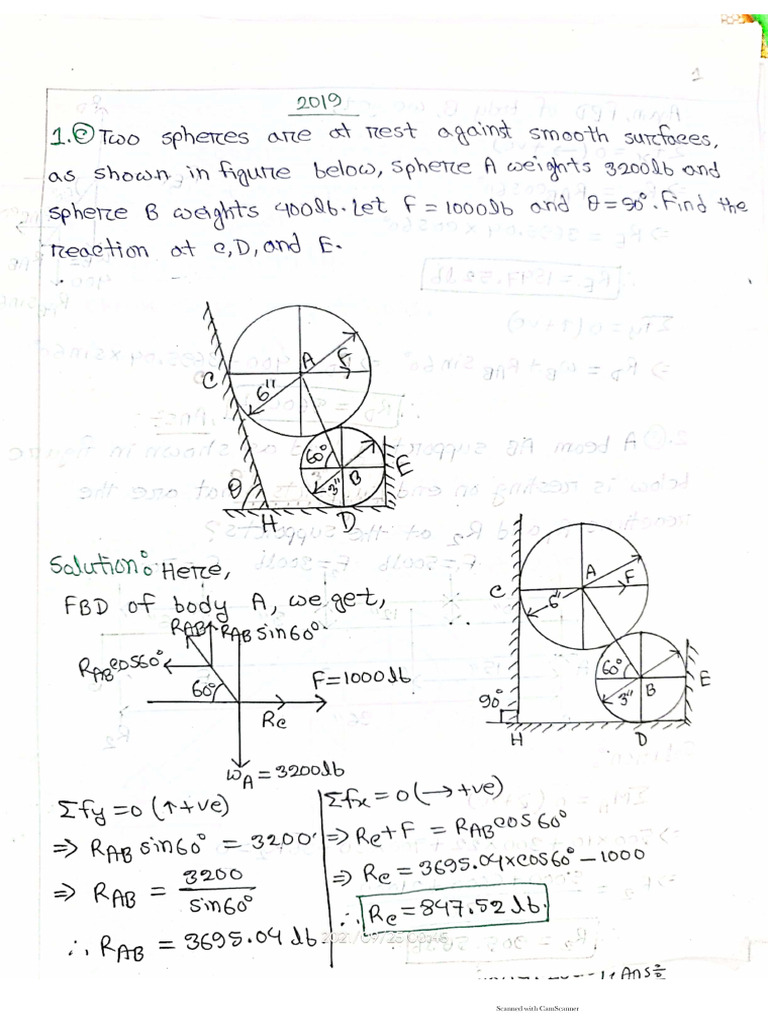 1
2019
1.ⓒ Two spheres are at rest against smooth surfaces,
as shown in figure below, sphere A weights 3200lb and
sphere B weights 400lb. Let F = 1000lb and θ = 90°. Find the
reaction at c, D, and E.
A
F
C
6"
60°
3"
B
E
θ
H
D
Solution: Here,
FBD of body A, we get,
∴
A
F
C
6"
60°
3"
B
E
90°
H
D
R_AB
R_AB sin60°
R_AB cos60°
60°
F=1000lb
Rc
W_A = 3200lb
Σfy = 0 (↑+ve)
⇒ R_AB sin60° = 3200
⇒ R_AB = 3200/sin60°
∴ R_AB = 3695.04 lb
Σfx = 0 (→ +ve)
⇒ Rc + F = R_AB cos60°
⇒ Rc = 3695.04 × cos60° − 1000
∴ Rc = 847.52 lb.
Ans
Scanned with CamScanner